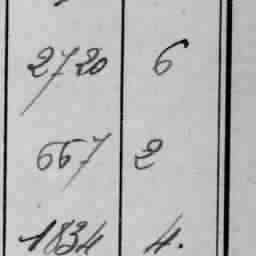 2720 6
667 2
1834 4.